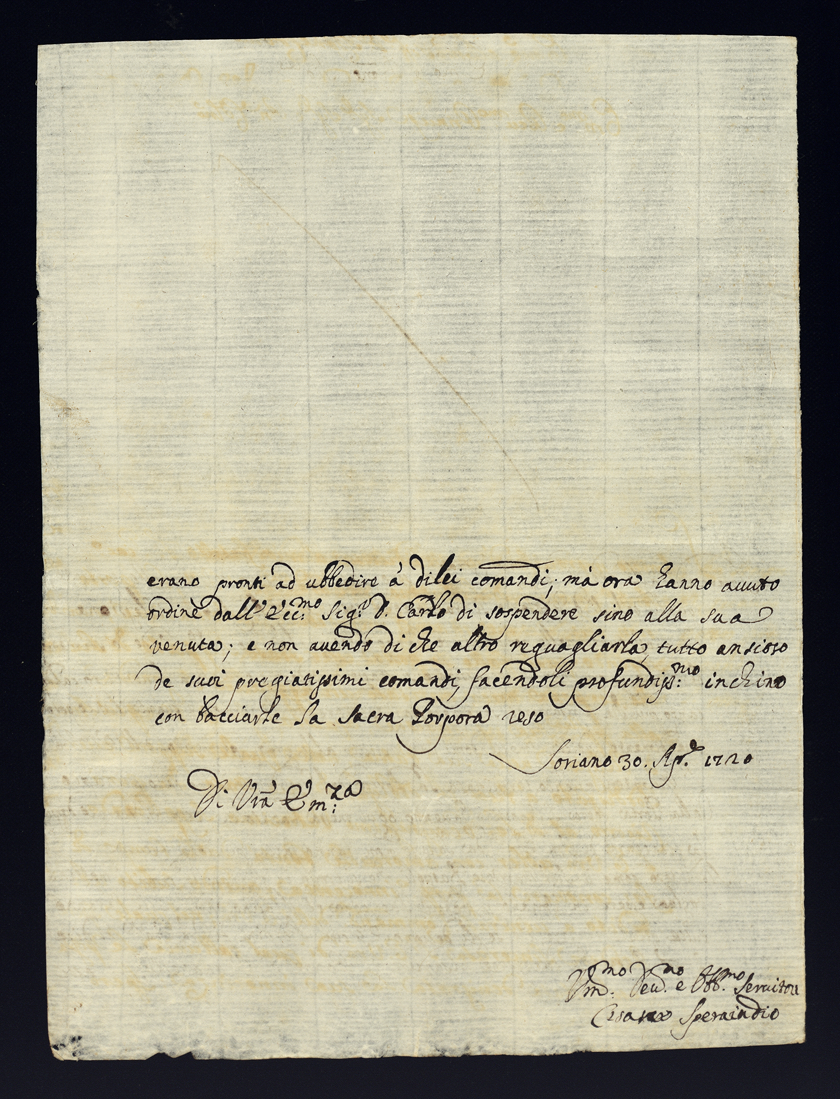 erano pronti ad ubbedire á di lei comandi, má ora hanno auuto
ordine dall' Ecc:mo Sigr. D. Carlo di sospendere sino alla sua
venuta; e non auendo di che altro reguagliarla tutto ansioso
de suoi pregiatissimi comandi, facendoli profundiss:mo inchino
con bacciarle la sacra Porpora reso
Soriano 30. Apr.e 1720
Di Vra Em:za
Vm:mo Deu.mo e Obb.mo Seruitou
Cesare Speraindio